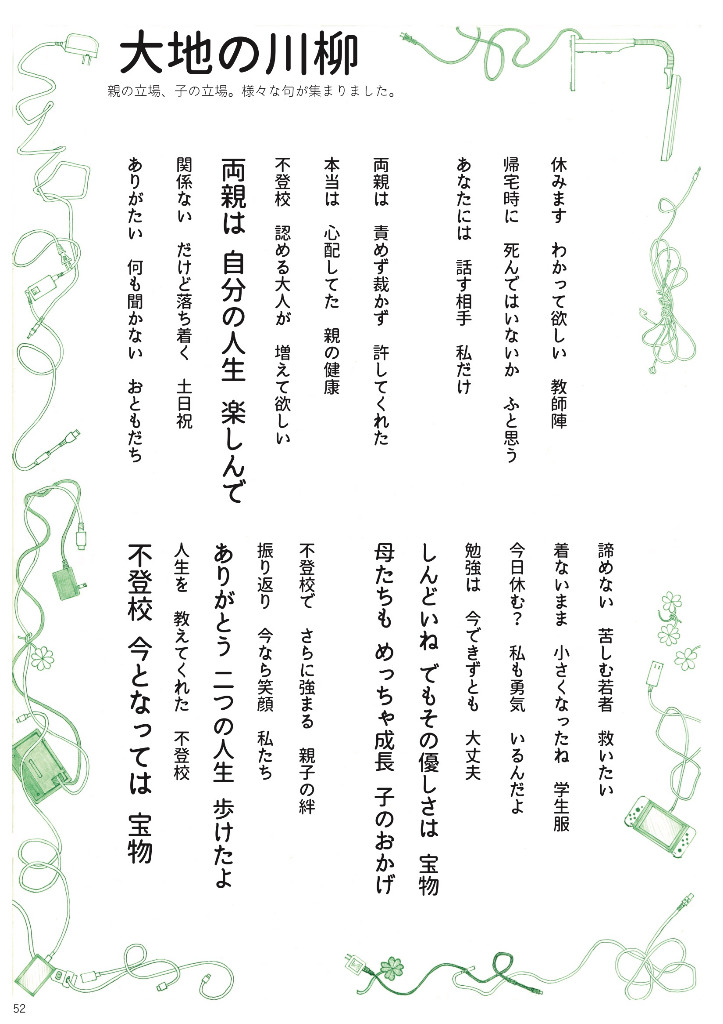 大地の川柳
親の立場、子の立場。様々な句が集まりました。
休みます わかって欲しい 教師陣
帰宅時に 死んではいないか ふと思う
あなたには 話す相手 私だけ
両親は 責めず裁かず 許してくれた
本当は 心配してた 親の健康
不登校 認める大人が 増えて欲しい
両親は 自分の人生 楽しんで
関係ない だけど落ち着く 土日祝
ありがたい 何も聞かない おともだち
諦めない 苦しむ若者 救いたい
着ないまま 小さくなったね 学生服
今日休む? 私も勇気 いるんだよ
勉強は 今できずとも 大丈夫
しんどいね でもその優しさは 宝物
母たちも めっちゃ成長 子のおかげ
不登校で さらに強まる 親子の絆
振り返り 今なら笑顔 私たち
ありがとう 二つの人生 歩けたよ
人生を 教えてくれた 不登校
不登校 今となっては 宝物
52